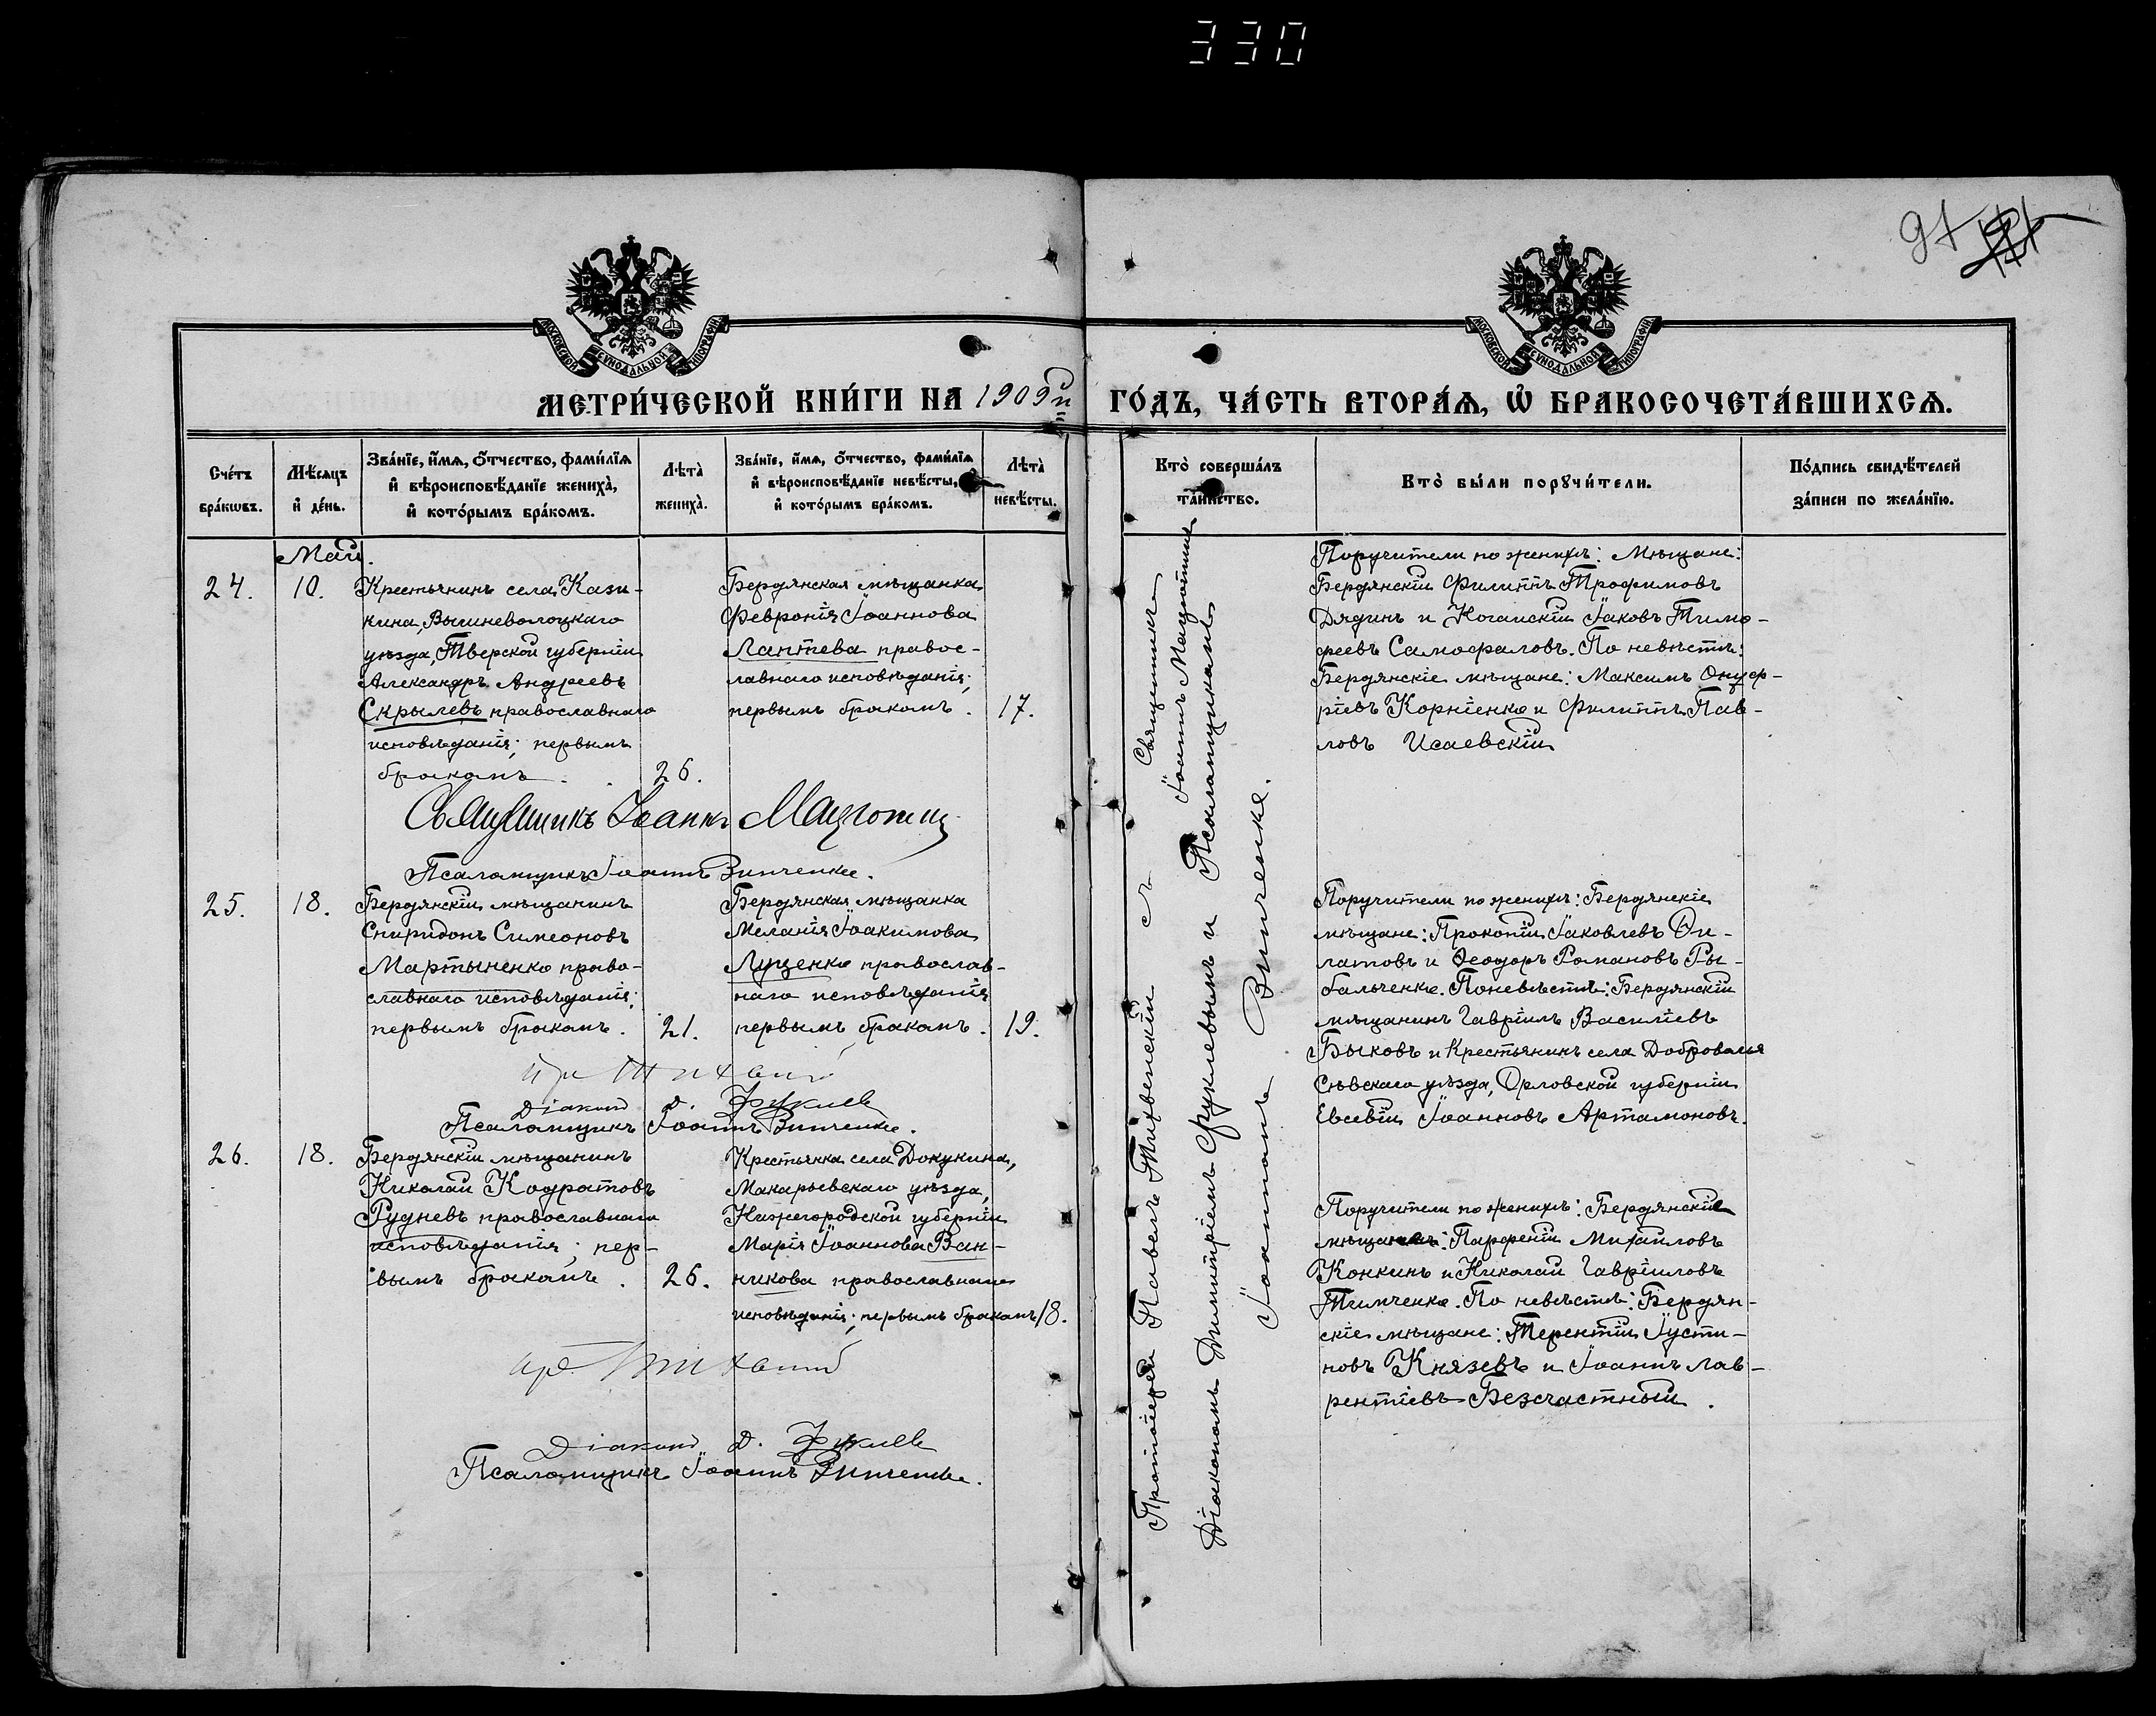 330
91
МОСКОВСКОЙ СУНОДАЛЬНОЙ ТИПОГРАФІИ
МОСКОВСКОЙ СУНОДАЛЬНОЙ ТИПОГРАФІИ
МЕТРИ́ЧЕСКОЙ КНИ́ГИ НА 1909й ГО́ДЪ, ЧА́СТЬ ВТОРА́Ѧ, Ѽ БРАКОСОЧЕТА́ВШИХСѦ.
Сче́тъ бра́кѡвъ.
Мѣ́сѧцъ и҆ де́нь.
Зва́нїе, и҆́мѧ, ѻ҆́тчество, фами́лїѧ
и҆ вѣроисповѣ́данїе жениха̀,
и҆ кото́рымъ бра́комъ.
Лѣта̀ жениха̀.
Зва́нїе, и҆́мѧ, ѻ҆́тчество, фами́лїѧ
и҆ вѣроисповѣ́данїе невѣ́сты,
и҆ кото́рымъ бра́комъ.
Лѣта̀ невѣ́сты.
Кто̀ соверша́лъ
та́инство.
Кто̀ бы́ли порꙋчи́тели.
По́дпись свидѣ́телей
за́писи по жела́нїю.
Май.
24.
10.
Крестьянинъ села Кази-
кина, Вышневолоцкаго
уѣзда, Тверской губерніи
Александръ Андреевъ
Скрылевъ православнаго
исповѣданія; первымъ
бракомъ.
26.
Бердянская мѣщанка
Февронія Іоаннова
Лаптева правос-
лавнаго исповѣданія;
первымъ бракомъ.
17.
Поручители по женихѣ: Мѣщане:
Бердянскій Филиппъ Трофимовъ
Дядинъ и Ногайскій Іаковъ Тимо-
феевъ Самофаловъ. По невѣстѣ:
Бердянскіе мѣщане: Максимъ Онуф-
ріевъ Корніенко и Филиппъ Пав-
ловъ Исаевскій
Священникъ Іоаннъ
Псаломщикъ Іоаннъ Зинченко.
25.
18.
Бердянскій мѣщанинъ
Спиридонъ Симеоновъ
Мартыненко право-
славнаго исповѣданія;
первымъ бракомъ.
21.
Бердянская мѣщанка
Меланія Іоакимова
Луценко православ-
наго исповѣданія
первымъ бракомъ.
19.
Поручители по женихѣ: Бердянскіе
мѣщане: Прокопій Іаковлевъ Фи-
латовъ и Ѳеодоръ Романовъ Ры-
бальченко. По невѣстѣ: Бердянскій
мѣщанинъ Гавріилъ Василіевъ
Быковъ и Крестьянинъ села Доброводья
Сѣвскаго уѣзда, Орловской губерніи
Евсевій Іоанновъ Артамоновъ.
Діаконъ Д.
Псаломщикъ Іоаннъ Зинченко.
26.
18.
Бердянскій мѣщанинъ
Николай Кодратовъ
Рудневъ православнаго
исповѣданія; пер-
вымъ бракомъ.
26.
Крестьянка села Докукина,
Макарьевскаго уѣзда,
Нижегородской губерніи
Марія Іоаннова Ван-
никова православнаго
исповѣданія; первымъ бракомъ
18.
Поручители по женихѣ: Бердянскіе
мѣщане: Парфеній Михайловъ
Конкинъ и Николай Гавріиловъ
Тимченко. По невѣстѣ: Бердян-
скіе мѣщане: Терентій Іусти-
новъ Князевъ и Іоаннъ Лав-
рентіевъ Безсчастный.
Діаконъ Д.
Псаломщикъ Іоаннъ Зинченко.
Священникъ
Іоаннъ
Протоіерей Павелъ Тихвенскій съ
Діакономъ Димитріемъ Фруклевымъ и Псаломщикомъ
Іоанномъ Зинченко.